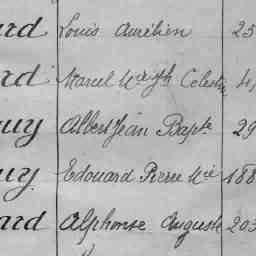 ard Louis Aurélien 25
rd Marcel Mie Jh Célestin 4
uy Albert Jean Bapte 29
uy Edouard Pierre Mie 188
ard Alphonse Auguste 203